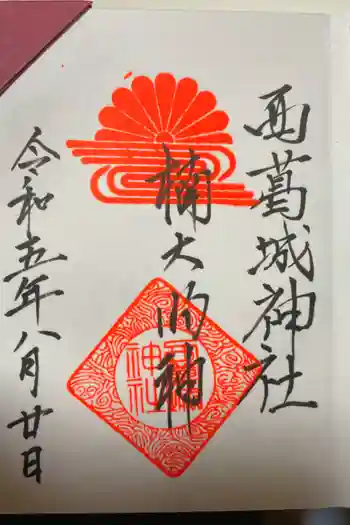 西葛城神社
楠大的神
令和五年八月廿日